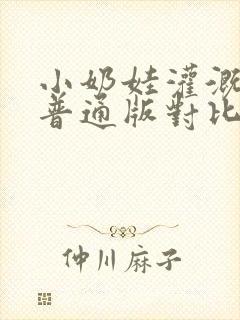 小奶娃灌溉
普通版對比
仲川麻子